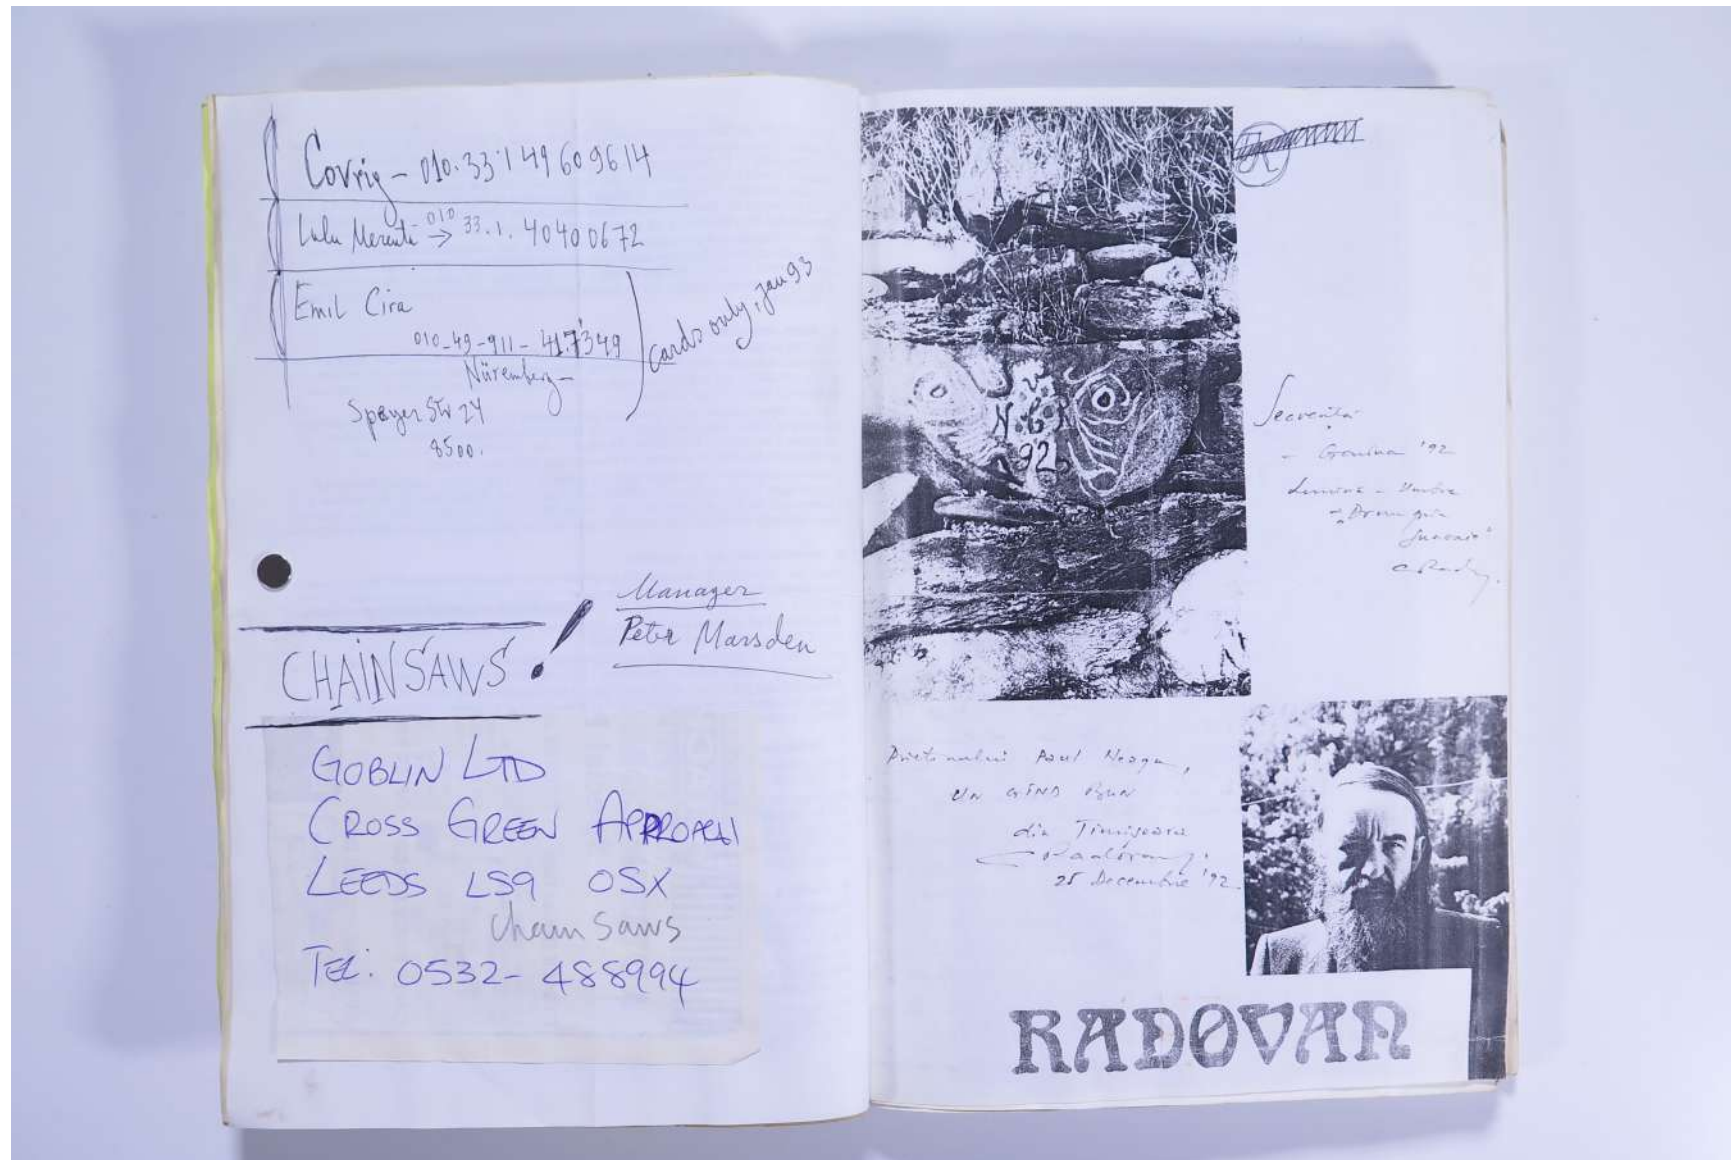 Covrig – 010.33.1 49609614
Lulu Merenti 010 → 33.1. 40400672
Emil Cira
010-49-911-417349
Nüremberg –
Speyer Str 24
8500.
cards only, jan 93
Manager
Peter Marsden
CHAINSAWS!
GOBLIN LTD
CROSS GREEN APPROACH
LEEDS LS9 OSX
Chain Saws
TEL: 0532-488994
N.G.
92
Secvență
- '92
Lumină - Umbră
Prietenului Paul Neagu,
UN GÎND BUN
din Timișoara
C Radovan
25 Decembrie '92
RADOVAN